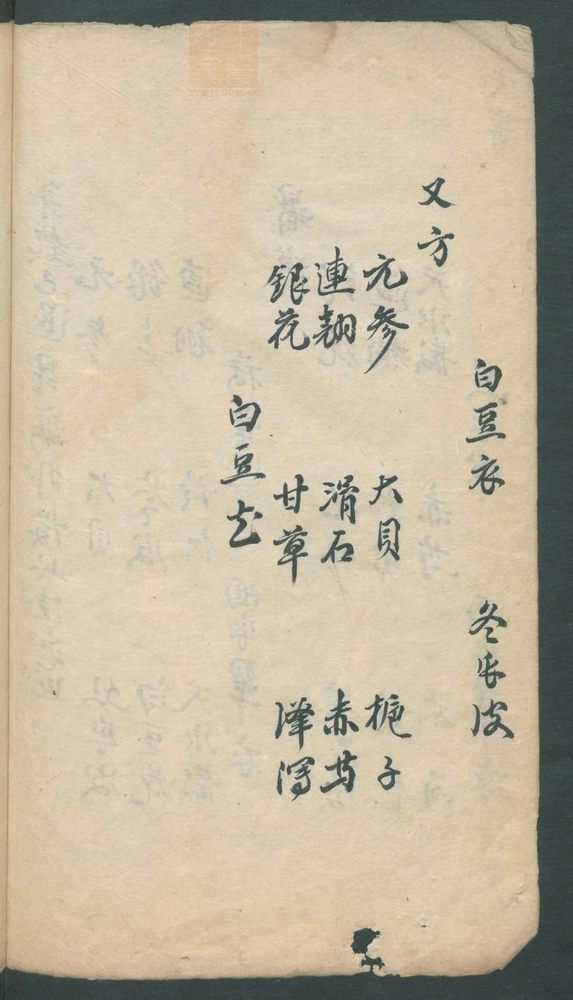 白豆衣 冬瓜皮
又方
元参 大貝 梔子
連翹 滑石 赤芍
銀花 甘草 澤瀉
白豆衣